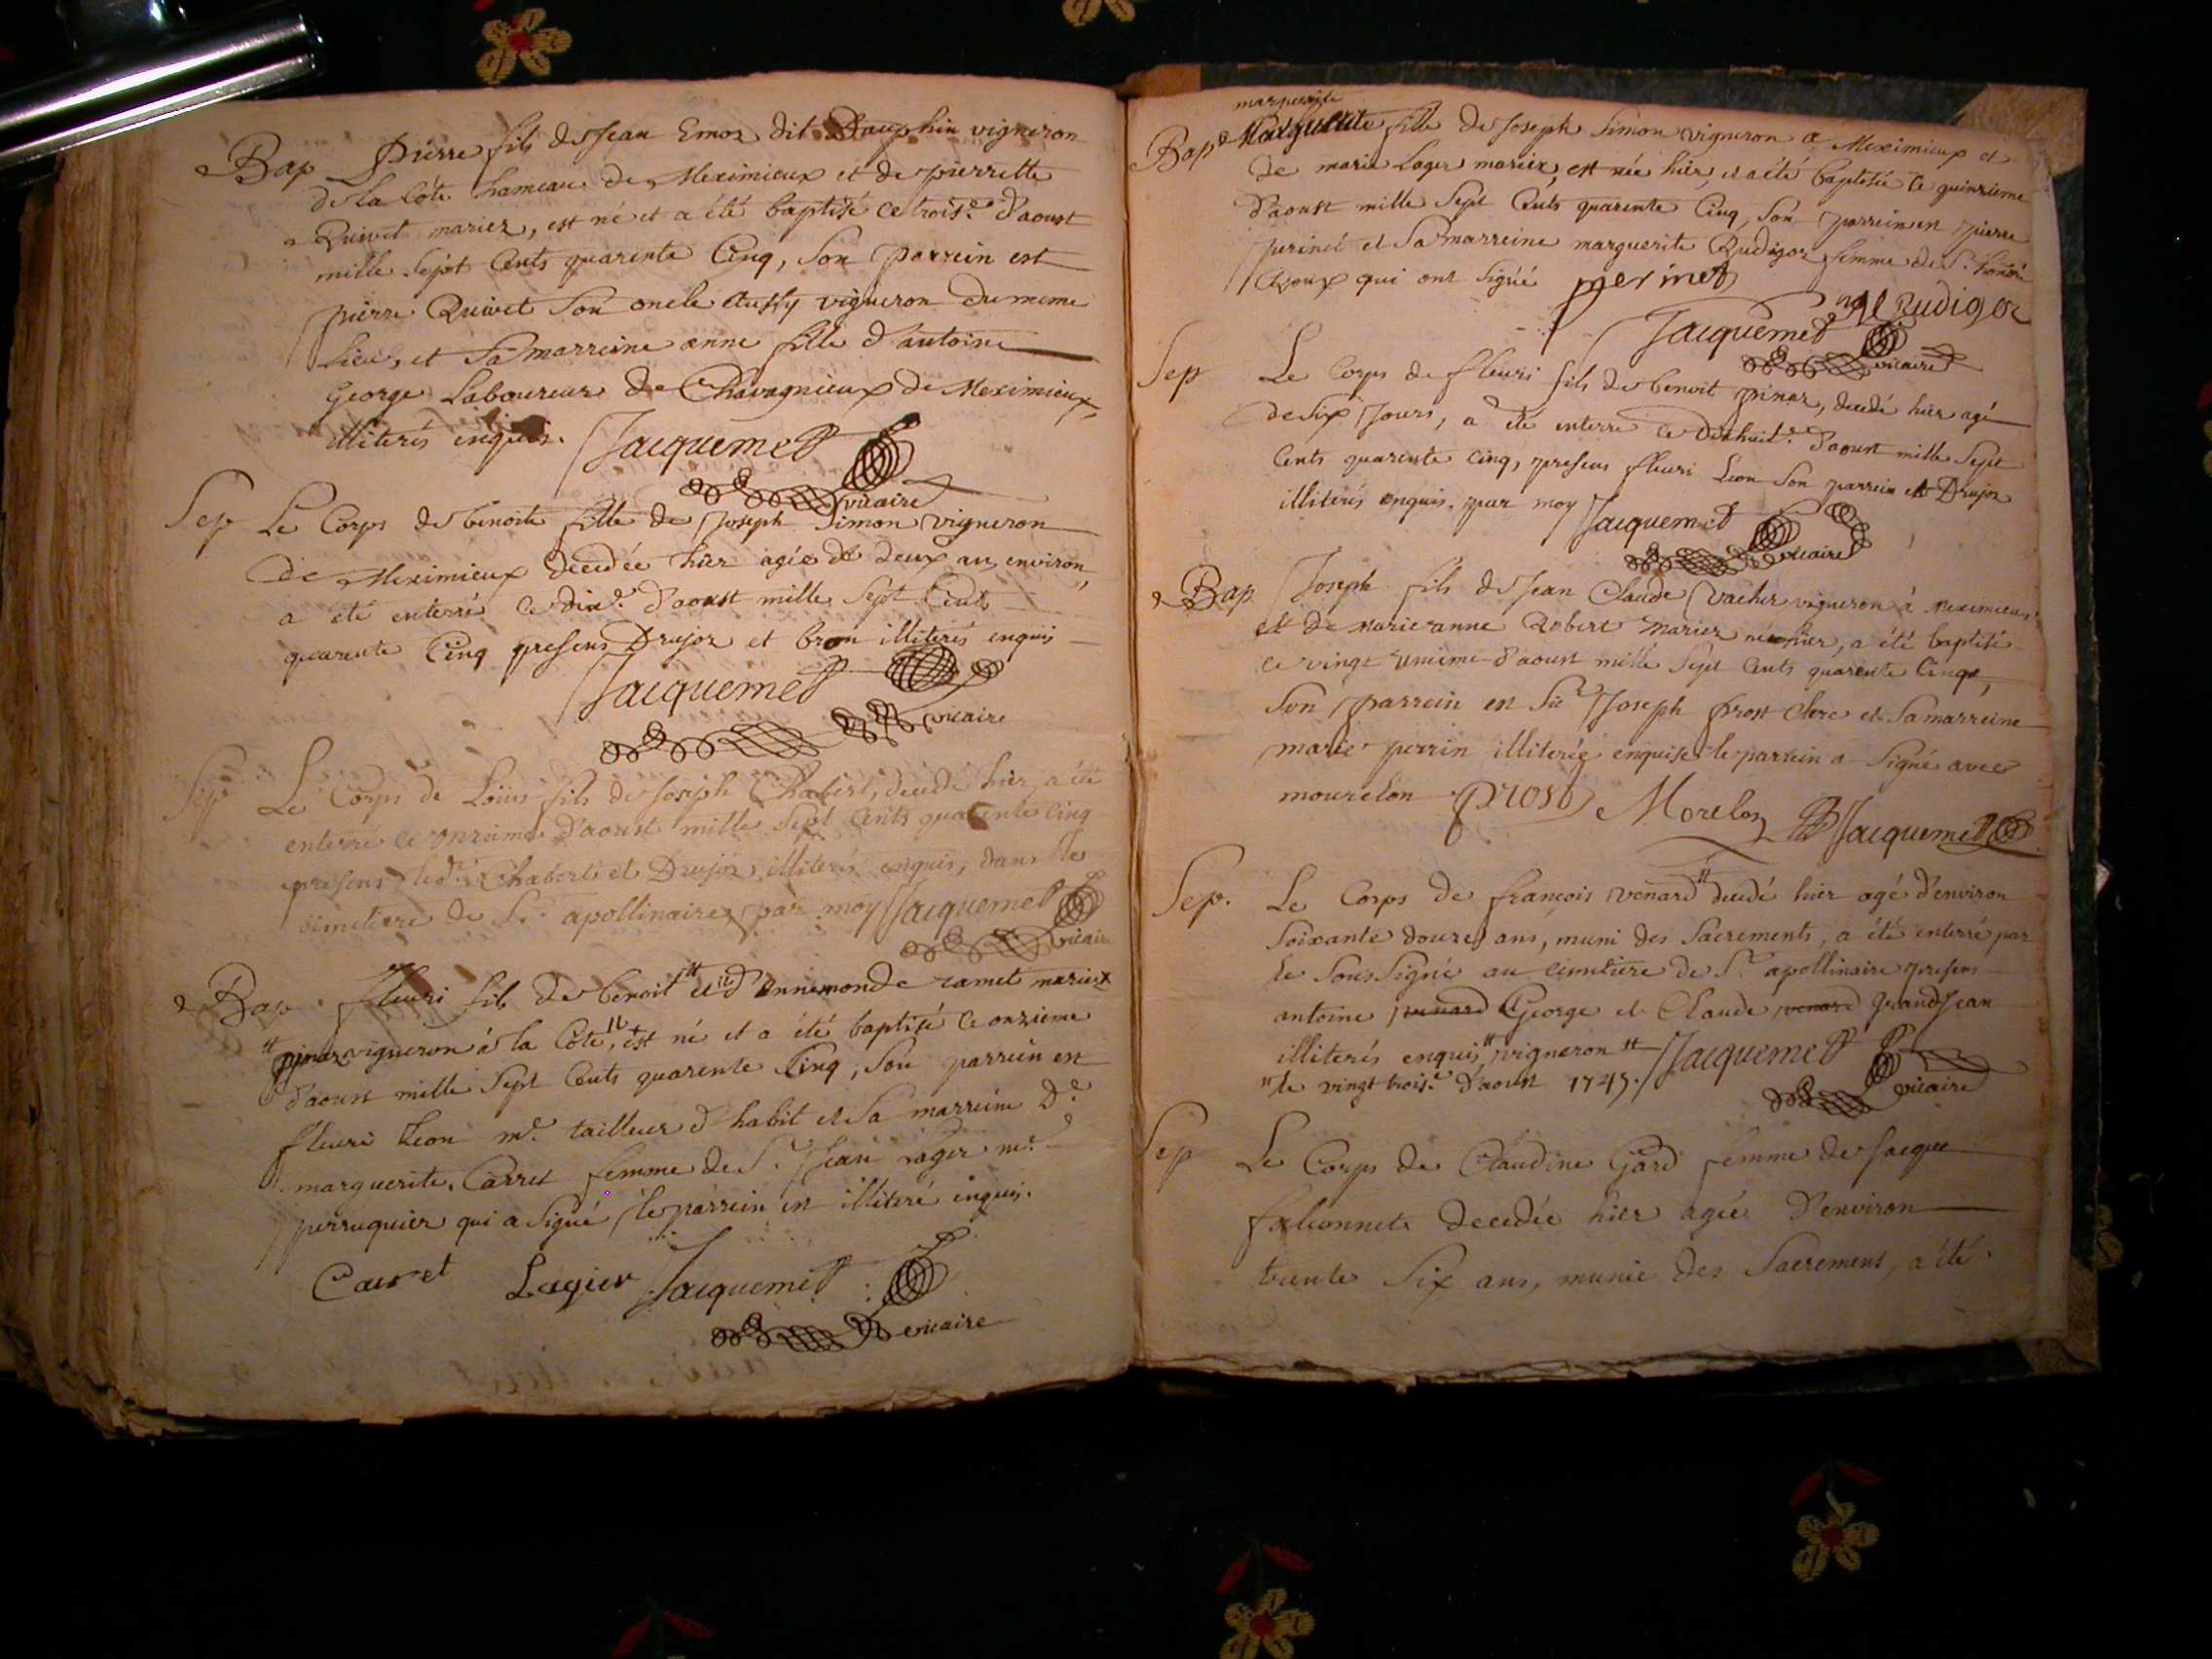 Bap Pierre fils de Jean Emoz dit Dauphin vigneron
de la Côte hameau de Meximieux et de pierrette
Quivet mariez, est né et a été baptisé ce trois.e d'aoust
mille Sept Cents quarente Cinq, Son parrein est
pierre Quivet Son oncle Aussy vigneron du meme
Lieu, et Sa marreine anne fille d'antoine
George Laboureur de Chavagnieux de Meximieux,
illiterés enquis. Jacquemet
vicaire
Sep Le Corps de benoite fille de Joseph Simon vigneron
de Meximieux decedée hier agée de deux ans environ,
a été enterré ce dix.e d'aoust mille Sept Cents
quarente Cinq presens Drujoz et bron illiterés enquis
Jacquemet
vicaire
Sep Le Corps de Loüis fils de Joseph Chabert, decedé hier, a été
enterré ce onzieme d'aoust mille Sept Cents quarente Cinq
presens led. Chabert et Drujoz illiterés enquis, dans le
cimetiere de St. apollinaire, par moy Jacquemet
vicaire
Bap fleuri fils de benoit # et d'Annemonde ramet mariez
# pinaz vigneron à la Côte, est né et a été baptisé ce onzieme
d'aoust mille Sept Cents quarente Cinq, Son parrein est
fleuri Léon m.e tailleur d'habit et Sa marreine D.e
marguerite Carret femme de S.r Jean lager m.e
perruquier qui a Signé, le parrein est illiteré enquis.
Caret Lagier Jacquemet
vicaire
marguerite
Bap Marguerite fille de Joseph Simon vigneron a Meximieux et
de marie Loger mariez, est née hier, et a été baptisée ce quinzieme
d'aoust mille Sept Cents quarente Cinq, Son parrein est pierre
perinet et Sa marreine marguerite Rudigoz femme de S.r
qui ont Signé perinet
Rudigoz
Jacquemet
vicaire
Sep Le Corps de fleuri fils de benoit pinaz, decedé hier agé
de Six Jours, a été enterré ce dixhuit.e d'aoust mille Sept
Cents quarente cinq, presens fleuri Léon Son parrein et Drujoz
illiterés enquis, par moy Jacquemet
vicaire
Bap Joseph fils de Jean Claude Vacher vigneron à Meximieux
et de marie anne Robert mariez né hier, a été baptisé
ce vingt unieme d'aoust mille Sept Cents quarente Cinq,
Son parrein est Sr Joseph prost Clerc et Sa marreine
marie perrin illiterée enquise le parrein a Signé avec
mourelon prost Morelon Jacquemet
Sep. Le Corps de françois venard # decedé hier agé d'environ
Soixante douze ans, muni des Sacrements, a été enterré par
le Sous Signé au cimetiere de S.t apollinaire presens
antoine venard George et Claude venard grand Jean
illiterés enquis # vigneron # Jacquemet
# le vingt trois.e d'aoust 1745. vicaire
Sep Le Corps de Claudine Gard femme de Jacque
falconnet decedée hier agée d'environ
trente Six ans, munie des Sacremens, a été